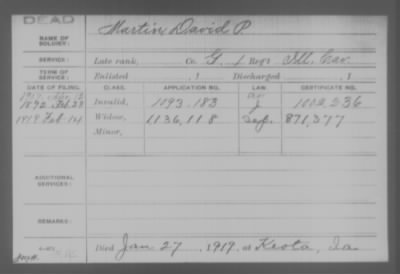 DEAD
NAME OF SOLDIER: Martin David P.
SERVICE: Late rank, Co. G, 1 Reg't Ill. Cav.
TERM OF SERVICE: Enlisted , 1 Discharged , 1
DATE OF FILING. CLASS. APPLICATION NO. LAW. CERTIFICATE NO.
1892 Feb 23 Invalid, 1093.183 J 1002.236
1919 Feb 14 Widow, 1136.118 871,377
Minor,
ADDITIONAL SERVICES:
REMARKS:
Died Jan 27, 1919, at Keota, Ia